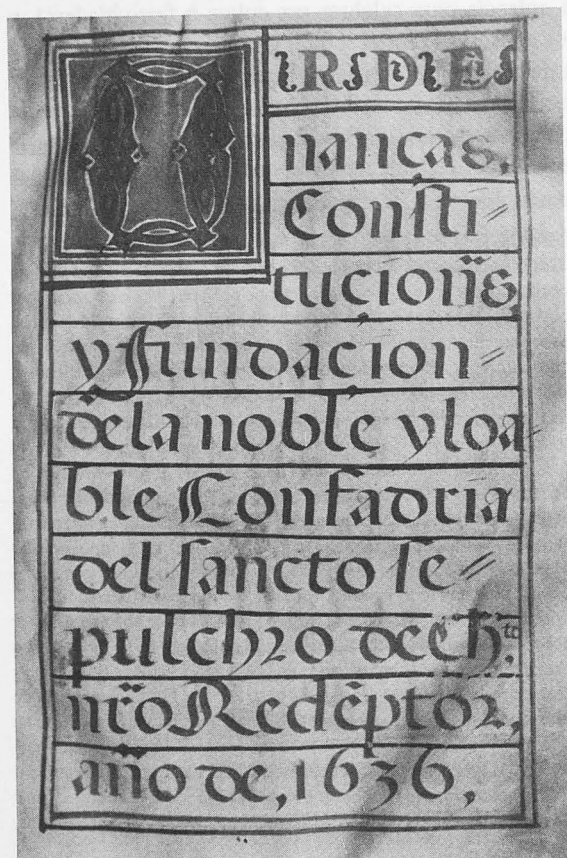 ORDE
nanças,
Consti=
tucion̈es
y fundacion=
dela noble y loa=
ble Confadria
del sancto se=
pulchro de Chto.
nr̃o Redẽptor,
año de, 1636,